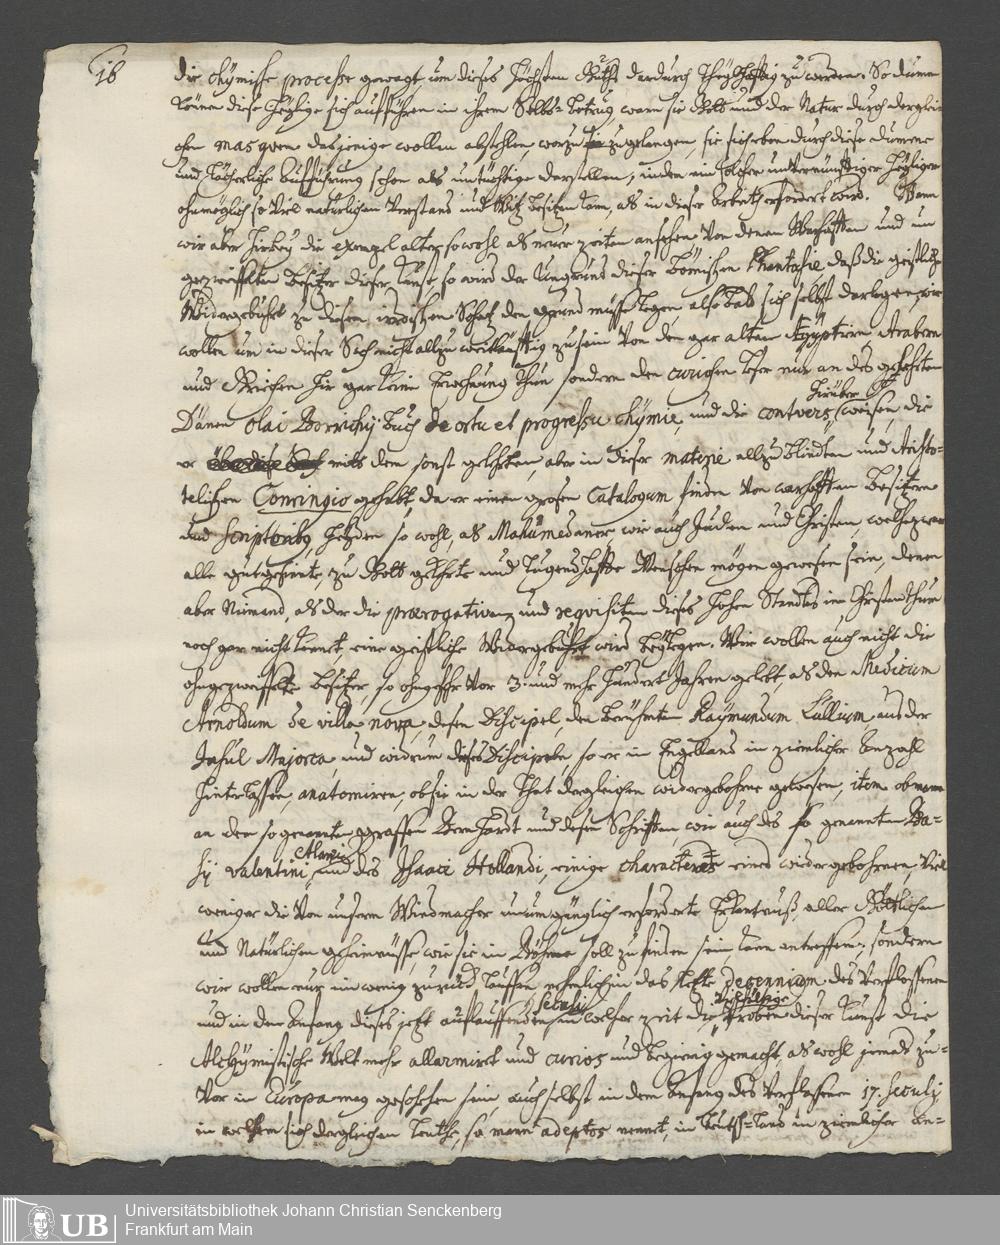 16
die chÿmische processe gewagt, um dieses höchsten Guths dardurch theylhafftig zu werden. So dumm
können diese Heÿlige sich aufführen in ihrem Selbs-betrug, wann sie Gott und der Natur durch derglei-
chen masquen dasjenige wollen abstehlen, worzu zugelangen, sie sich eben durch diese dumme
und lächerliche Aufführung schon als untüchtige darstellen, indem ein solcher unvernünfftiger Heÿliger
ohnmöglich so viel natürlichen Verstand und Witz besitzen kan, als in dieser Arbeith erfordert wird. Wann
wir aber hierbeÿ die exempel alter so wohl als neuer zeiten ansehen von denen Warhafften und un
gezweiffelten besitzer dieser Kunst so wird der Ungrund dieser Bömischen Phantasie daß die geistliche
Widergebuhrt zu diesem irdischen Schatz den grund müsse legen also bald sich selbst darlegen, wir
wollen um in dieser Sach nicht allzu weitläufftig zu sein von den gar alten Ægÿptiern, Arabern
und Griechen hir gar keine Erwehnung thun sondern den curieusen leser nur an des gelehrten
Dänen Olai Borrichij buch de ortu et progressu chÿmiæ, und die contvers, hirüber weisen, die
er mit dem sonst gelehrten, aber in dieser materie allzu blindten und Aristo-
telischen Conringio gehabt, da er einen grosen Catalogum finden von warhafften besitzern
und scriptoribq, Heÿden so wohl, als Mahumedaner wie auch Juden und Christen, welche zwar
alle gutgesinnte zu Gott gekehrte und tugendhaffte Menschen mögen gewesen sein, denen
aber Niemand, als der die prærogativam und reqvisiten dieses hohen Standes im Christenthum
noch gar nicht kennet, eine geistliche Widergebuhrt wird beÿlegen. Wir wollen auch nicht die
ohngezweiffelte besitzer, so ohngefehr vor 3. und mehr hundert Jahren gelebt, als den Medicum
Arnoldum de villa nova, desen Discipel, den berühmten Raÿmundum Lullium, aus der
Insul Majorca, und widrum deses Discipeln, so er in Engelland in ziemlicher Anzahl
hinterlassen, anatomiren, ob sie in der that dergleichen widergebohrne gewesen, item ob mann
an dem so genannten graffen Bernhardt und desen Schrifften, wie auch des so genannten Ba-
sij valentini, und des Isaaci Hollandi, einige characteres eines widergebohrenen, viel
weniger die von unserm Windmacher unumgänglich erforderte Erkentnuß aller Göttlichen
und Natürlichen geheimnüsse, wie sie in Böhme soll zu finden sein, kan antreffen; sondern
wir wollen nur ein wenig zuruck lauffen nehmlich in das letzte decennium des verflossenen
und in den Anfang dieses jetzt auflauffenden Seculij in welcher zeit die Proben dieser Kunst die
Alchÿmistische Welt mehr allarmiret und curios und begierig gemacht, als wohl jemals zu-
vor in Europa mag geschehen sein, auch selbst in dem Anfang des verflossenen 17. Seculij
in welchem sich dergleichen leuthe, so mann adeptos nennet, in Teutsch-land in ziemlicher An-
Universitätsbibliothek Johann Christian Senckenberg
Frankfurt am Main
UB